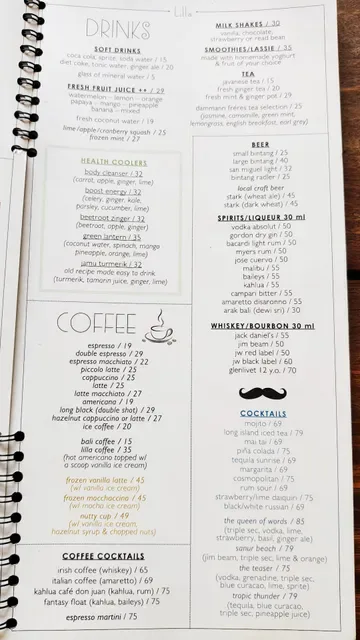 Lilla
DRINKS
SOFT DRINKS
coca cola, sprite, soda water / 15
diet coke, tonic water, ginger ale / 20
glass of mineral water / 5
FRESH FRUIT JUICE ++ / 29
watermelon - lemon - orange
papaya - mango - pineapple
banana - mixed
fresh coconut water / 19
lime/apple/cranberry squash / 25
frozen mint / 27
HEALTH COOLERS
body cleanser / 32
(carrot, apple, ginger, lime)
boost energy / 32
(celery, ginger, kale,
parsley, cucumber, lime)
beetroot zinger / 32
(beetroot, apple, ginger)
green lantern / 35
(coconut water, spinach, mango
pineapple, orange, lime)
jamu turmeric / 32
old recipe made easy to drink
(turmeric, tamarin juice, ginger, lime)
COFFEE
espresso / 19
double espresso / 29
espresso macchiato / 22
piccolo latte / 25
cappuccino / 25
latte / 25
latte macchiato / 27
americano / 19
long black (double shot) / 29
hazelnut cappuccino or latte / 27
ice coffee / 20
bali coffee / 15
lilla coffee / 35
(hot americano topped w/
a scoop vanilla ice cream)
frozen vanilla latte / 45
(w/ vanilla ice cream)
frozen mocchaccino / 45
(w/ mocha ice cream)
nutty cup / 49
(w/ vanilla ice cream,
hazelnut syrup & chopped nuts)
COFFEE COCKTAILS
irish coffee (whiskey) / 65
italian coffee (amaretto) / 69
kahlua café don juan (kahlua, rum) / 75
fantasy float (kahlua, baileys) / 75
espresso martini / 75
MILK SHAKES / 30
vanilla, chocolate,
strawberry or read bean
SMOOTHIES/LASSIE / 35
made with homemade yoghurt
& fruit of your choice
TEA
javanese tea / 15
fresh ginger tea / 20
fresh mint & ginger pot / 29
dammann freres tea selection / 25
(jasmine, camomile, green mint,
lemongrass, english breakfast, earl grey)
BEER
small bintang / 25
large bintang / 40
san miguel light / 32
bintang radler / 25
local craft beer
stark (wheat ale) / 45
stark (dark wheat) / 45
SPIRITS/LIQUEUR 30 ml
vodka absolut / 50
gordon dry gin / 50
bacardi light rum / 50
myers rum / 50
jose cuervo / 50
malibu / 55
baileys / 55
kahlua / 55
campari bitter / 55
amaretto disaronno / 55
arak bali (dewi sri) / 30
WHISKEY/BOURBON 30 ml
jack daniel's / 55
jim beam / 50
jw red label / 50
jw black label / 60
glenlivet 12 y.o. / 70
COCKTAILS
mojito / 69
long island iced tea / 79
mai tai / 69
piña colada / 75
tequila sunrise / 69
margarita / 69
cosmopolitan / 75
rum sour / 69
strawberry/lime daiquiri / 75
black/white russian / 69
the queen of words / 85
(triple sec, vodka, lime,
strawberry, basil, ginger ale)
sanur beach / 79
(jim beam, triple sec, lime & orange)
the teaser / 75
(vodka, grenadine, triple sec,
blue curacao, lime, sprite)
tropic thunder / 79
(tequila, blue curacao,
triple sec, pineapple juice)